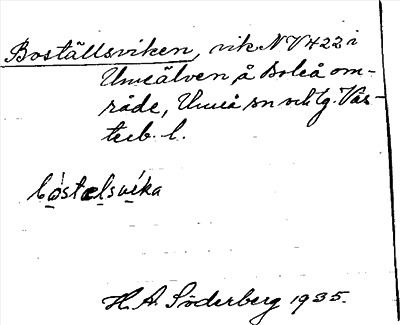 Boställsviken, vik NV 422 i
Umeälven å Boleå om-
råde, Umeå sn och tg. Väs-
terb. l.
bóstəlsvíka
H. A. Söderberg 1935.